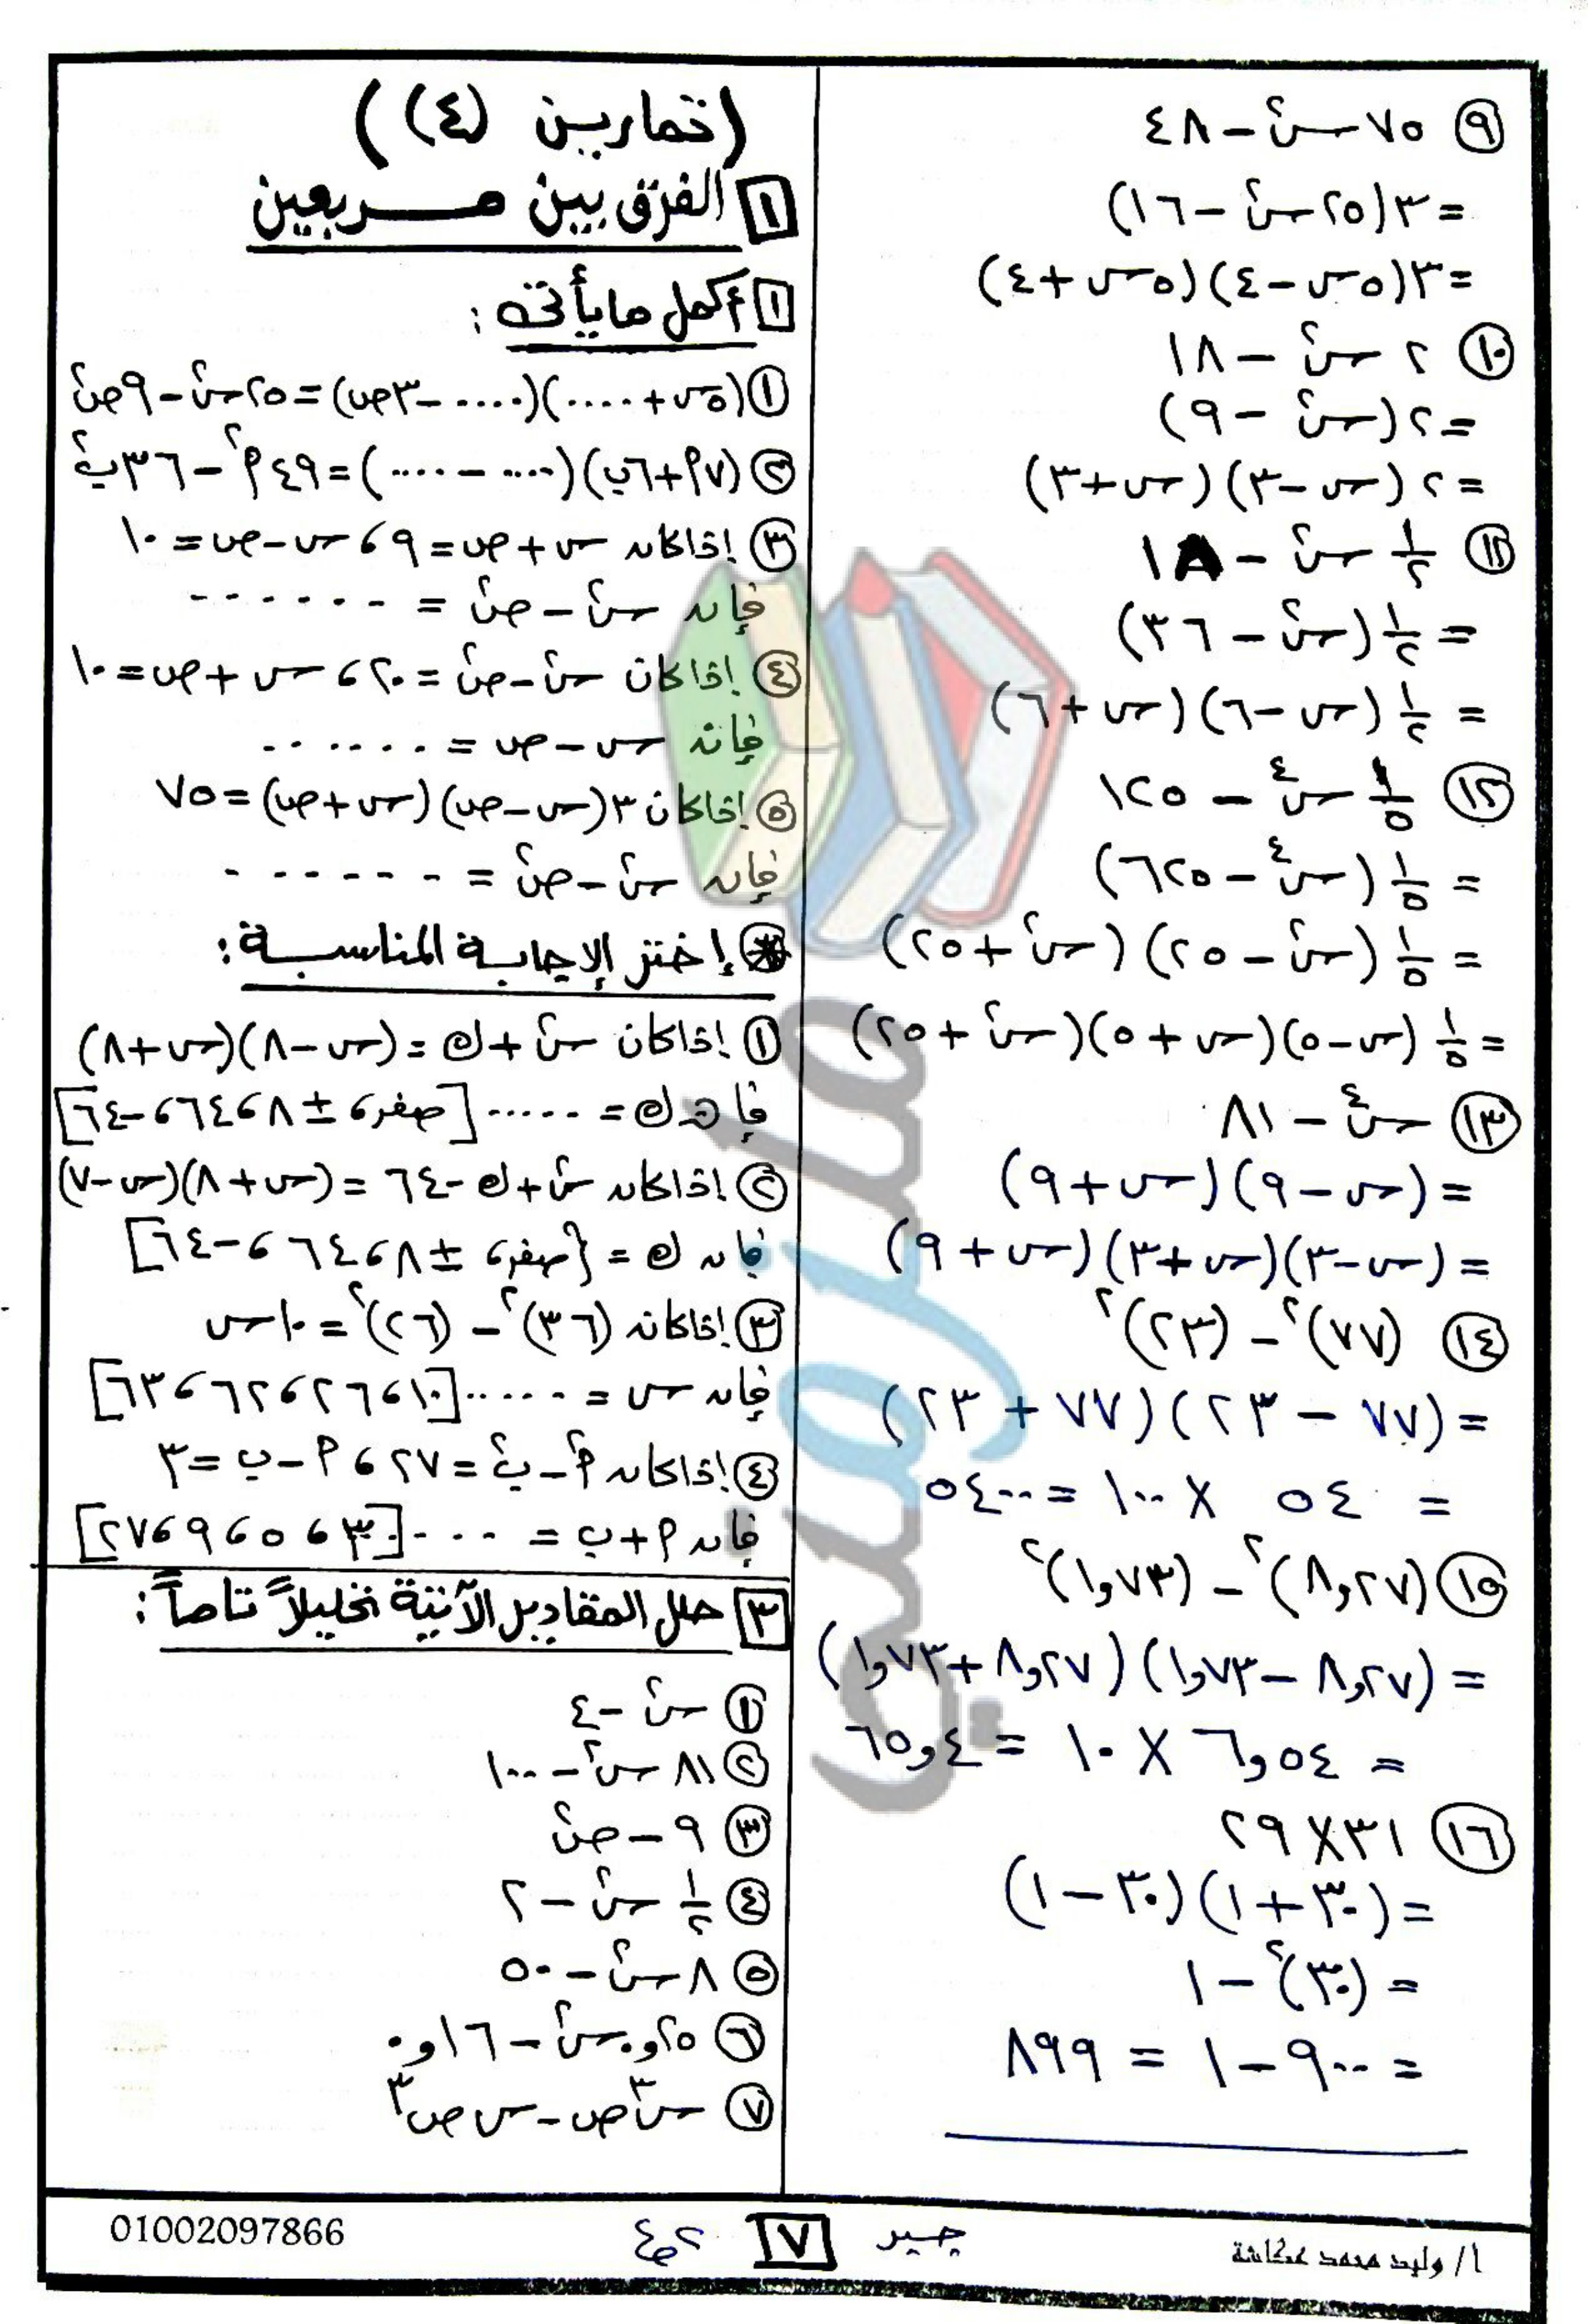 ٩ ٧٥ س٢ - ٤٨
= ٣(٢٥ س٢ - ١٦)
= ٣(٥س - ٤)(٥س + ٤)
١٠ ٢ س٢ - ١٨
= ٢(س٢ - ٩)
= ٢(س - ٣)(س + ٣)
١١ ١/٢ س٢ - ١٨
= ١/٢ (س٢ - ٣٦)
= ١/٢ (س - ٦)(س + ٦)
١٢ ١/٥ س٤ - ١٢٥
= ١/٥ (س٤ - ٦٢٥)
= ١/٥ (س٢ - ٢٥)(س٢ + ٢٥)
= ١/٥ (س - ٥)(س + ٥)(س٢ + ٢٥)
١٣ س٤ - ٨١
= (س - ٩)(س + ٩)
= (س - ٣)(س + ٣)(س + ٩)
١٤ (٧٧)٢ - (٢٣)٢
= (٧٧ - ٢٣)(٧٧ + ٢٣)
= ٥٤ × ١٠٠ = ٥٤٠٠
١٥ (٨,٢٧)٢ - (١,٧٣)٢
= (٨,٢٧ - ١,٧٣)(٨,٢٧ + ١,٧٣)
= ٦,٥٤ × ١٠ = ٦٥,٤
١٦ ٣١ × ٢٩
= (٣٠ + ١)(٣٠ - ١)
= (٣٠)٢ - ١
= ٩٠٠ - ١ = ٨٩٩
(تمارين (٤))
١ الفرق بين مربعين
١ أكمل ما يأتى :
١ (٥س + ....)(.... - ٣ص) = ٢٥س٢ - ٩ص٢
٢ (٧أ + ٦ب)(.... - ....) = ٤٩أ٢ - ٣٦ب٢
٣ إذا كان س + ص = ٩ ، س - ص = ١٠
فإن س٢ - ص٢ = ......
٤ إذا كان س٢ - ص٢ = ٢٠ ، س + ص = ١٠
فإن س - ص = ......
٥ إذا كان ٣(س - ص)(س + ص) = ٧٥
فإن س٢ - ص٢ = ......
إختر الإجابة المناسبة :
١ إذا كان س٢ + ك = (س - ٨)(س + ٨)
فإن ك = ..... [صفر ، ± ٨ ، ٦٤ ، -٦٤]
٢ إذا كان س٢ + ك - ٦٤ = (س + ٨)(س - ٧)
فإن ك = {صفر ، ± ٨ ، ٦٤ ، -٦٤]
٣ إذا كان (٣٦)٢ - (٢٦)٢ = ١٠س
فإن س = ..... [١٠ ، ٢٦ ، ٦٢ ، ٦٣]
٤ إذا كان أ٢ - ب٢ = ٢٧ ، أ - ب = ٣
فإن أ + ب = ... [٣ ، ٥ ، ٩ ، ٢٧]
٣ حلل المقادير الآتية تحليلاً تاماً :
١ س٢ - ٤
٢ ٨١ س٢ - ١٠٠
٣ ٩ - ص٢
٤ ١/٢ س٢ - ٢
٥ ٨ س٢ - ٥٠
٦ ٠,٢٥ س٢ - ٠,١٦
٧ س٣ ص - س ص٣
أ/ وليد محمد عكاشة
جبر ٧ ٢ع
01002097866